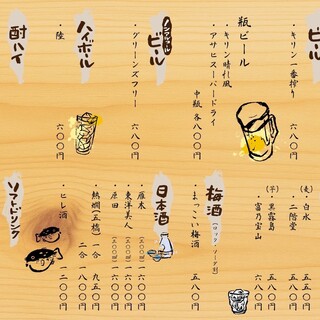 ビール
・キリン一番搾り
六八〇円
瓶ビール
・キリン晴れ風
・アサヒスーパードライ
中瓶 各八〇〇円
ノンアルコール
ビール
・グリーンズフリー
六八〇円
ハイボール
・陸
六〇〇円
酎ハイ
(麦)
・白水
五五〇円
・二階堂
五八〇円
(芋)
・黒霧島
五八〇円
・富乃宝山
六八〇円
梅酒
(ロック・ソーダ割)
・まっこい梅酒
五八〇円
日本酒
・雁木
・東洋美人
・原田
・熱燗(五橋)
一合 九五〇円
二合 一八〇〇円
・ヒレ酒
一二〇〇円
ソフトドリンク